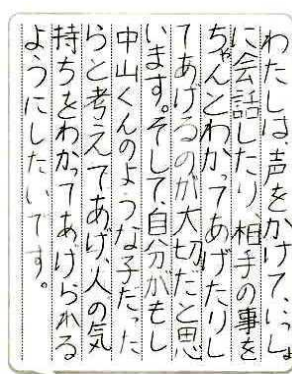 わたしは、声をかけて、いっしょ
に会話したり、相手の事を
ちゃんとわかってあげたりし
てあげるのが大切だと思
います。そして、自分がもし
中山くんのような子だった
らと考えてあげ、人の気
持ちをわかってあげられる
ようにしたいです。